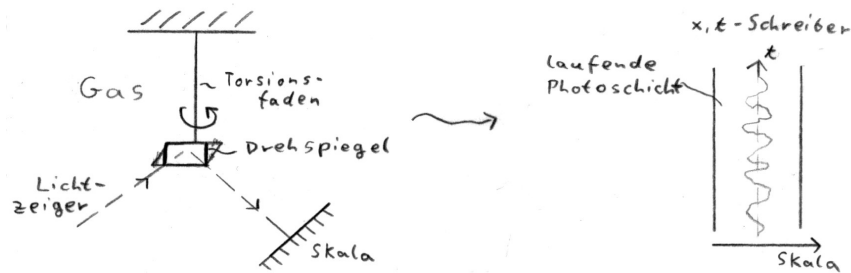 Gas
Torsions-
faden
Drehspiegel
Licht-
zeiger
Skala
x,t-Schreiber
t
laufende
Photoschicht
Skala